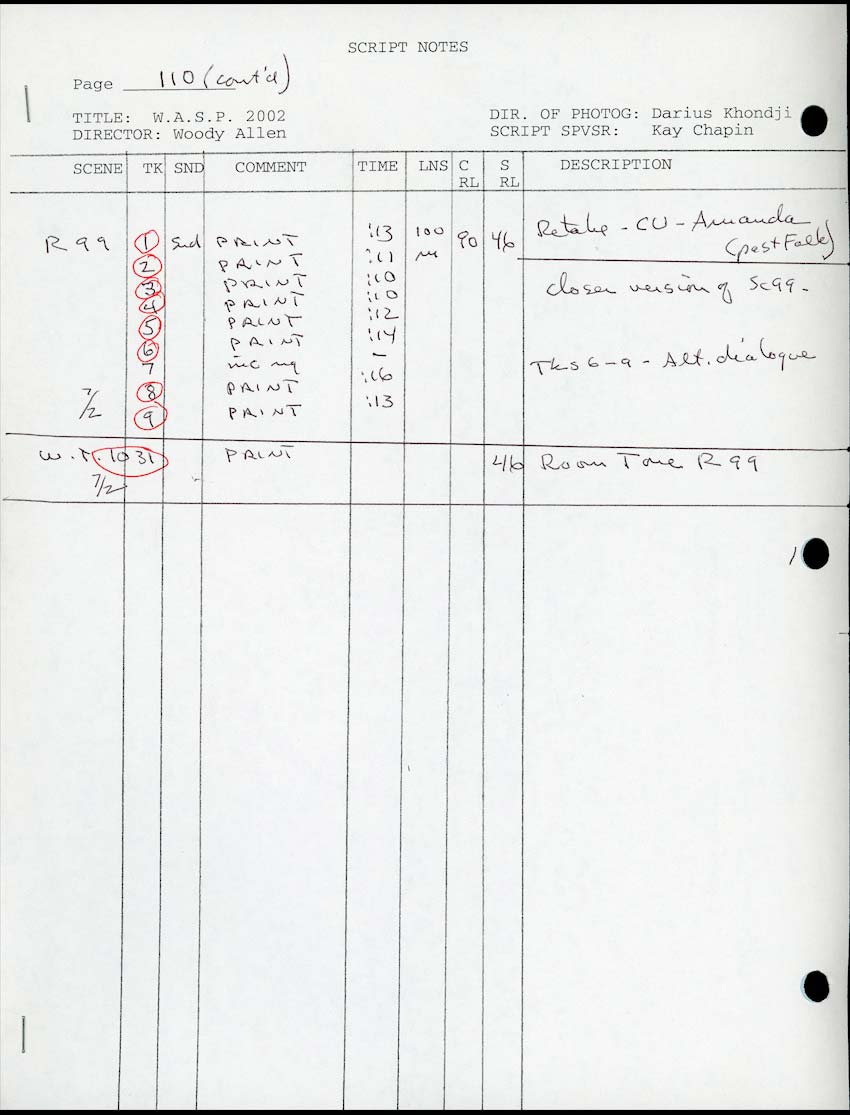 SCRIPT NOTES
Page 110 (cont'd)
TITLE: W.A.S.P. 2002
DIR. OF PHOTOG: Darius Khondji
DIRECTOR: Woody Allen
SCRIPT SPVSR: Kay Chapin
SCENE TK SND COMMENT TIME LNS C RL S RL DESCRIPTION
R99 1 Snd PRINT :13 100 90 46 Retake - CU - Amanda
2 PRINT :11 (past Falk)
3 PRINT :10 closer version of Sc99.
4 PRINT :10
5 PRINT :12
6 PRINT :14
7 inc ng - Tks 6-9 - Alt. dialogue
8 PRINT :16
7/2 9 PRINT :13
W.T. 1031 PRINT 46 Room Tone R99
7/2